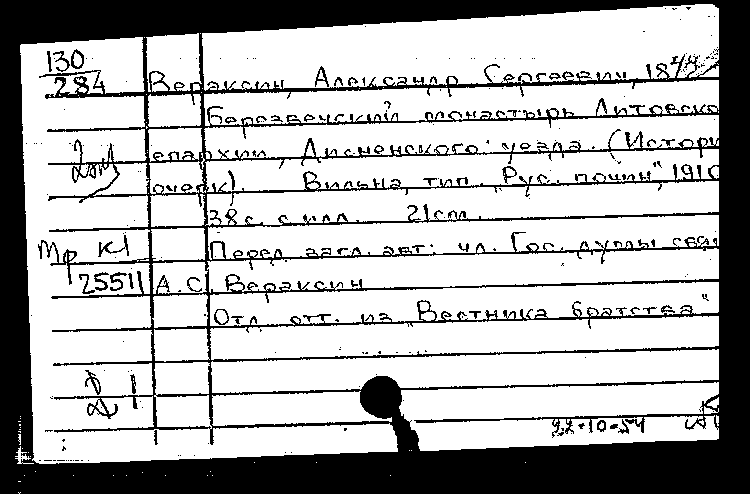 130
284 Вераксин, Александр Сергеевич, 187
Березвечский монастырь Литовско
епархии, Дисненского уезда. (Истори
очерк). Вильна, тип. "Рус. почин", 1910
38 с. с илл. 21 см.
Мф К1 Перед загл. авт: чл. Гос. думы свящ
25511 А. С. Вераксин
Отд. отт. из "Вестника братства"
1
22-10-54